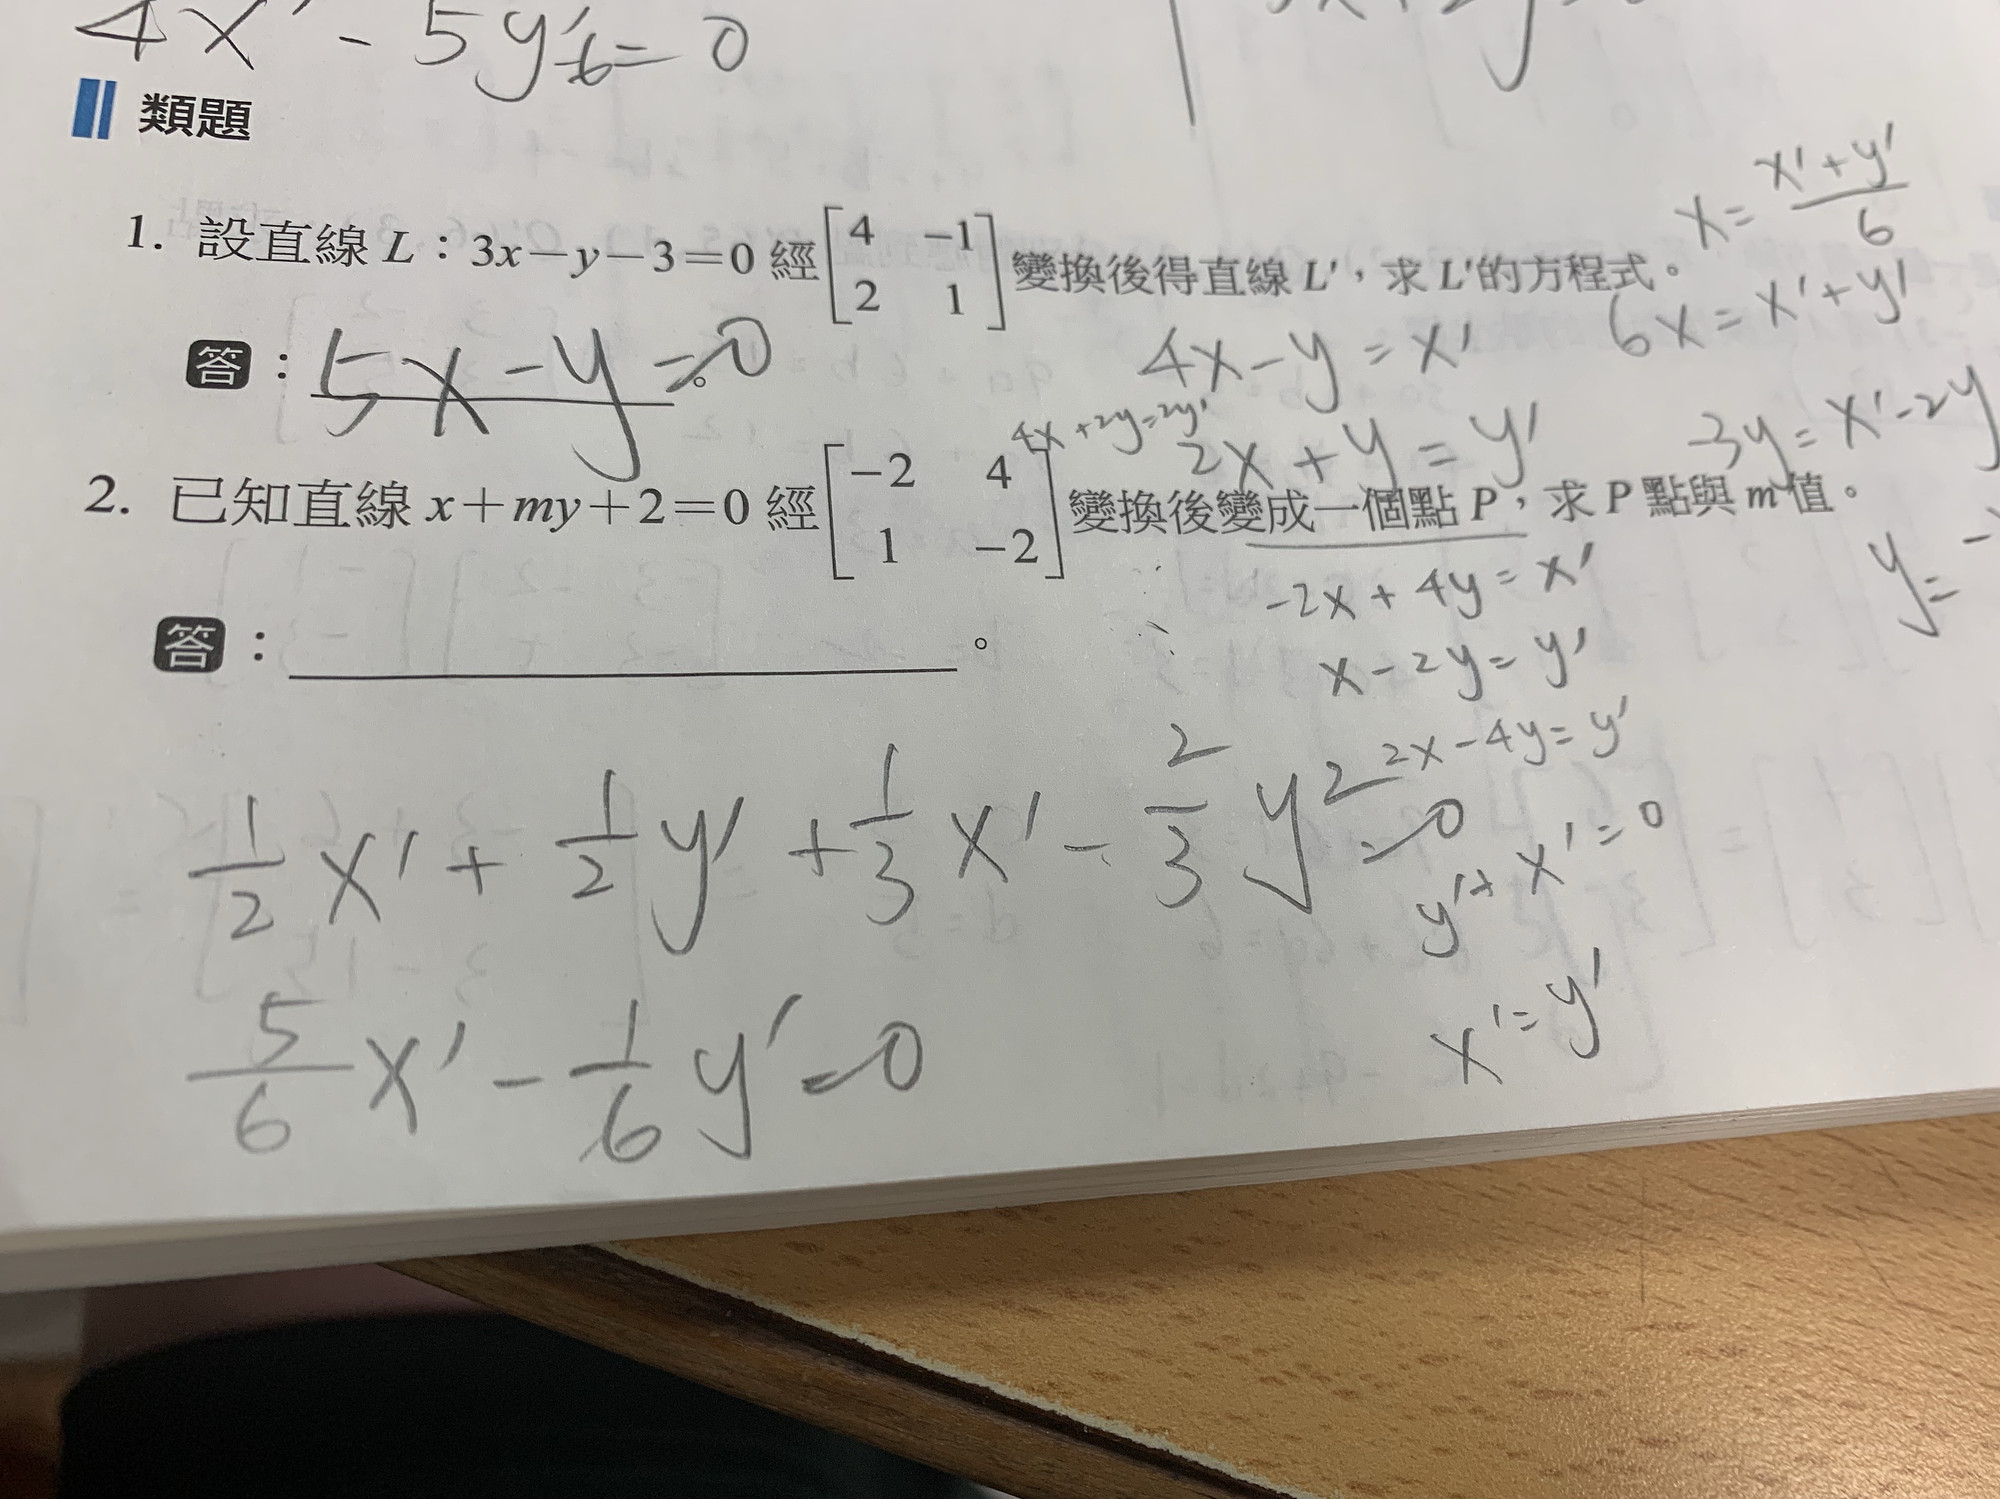 4x' - 5y' - 6 = 0
類題
x = \frac{x' + y'}{6}
1. 設直線 L：3x－y－3＝0 經 [4 －1; 2 1] 變換後得直線 L'，求 L'的方程式。
6x = x' + y'
答：5x - y = 0。
4x - y = x'
4x + 2y = 2y'
2x + y = y'
-3y = x' - 2y
2. 已知直線 x＋my＋2＝0 經 [－2 4; 1 －2] 變換後變成一個點 P，求 P 點與 m 值。
y =
答：。
-2x + 4y = x'
x - 2y = y'
2x - 4y = y'2
\frac{1}{2}x' + \frac{1}{2}y' + \frac{1}{3}x' - \frac{2}{3}y' = 0
y' + x' = 0
x' = y'
\frac{5}{6}x' - \frac{1}{6}y' = 0